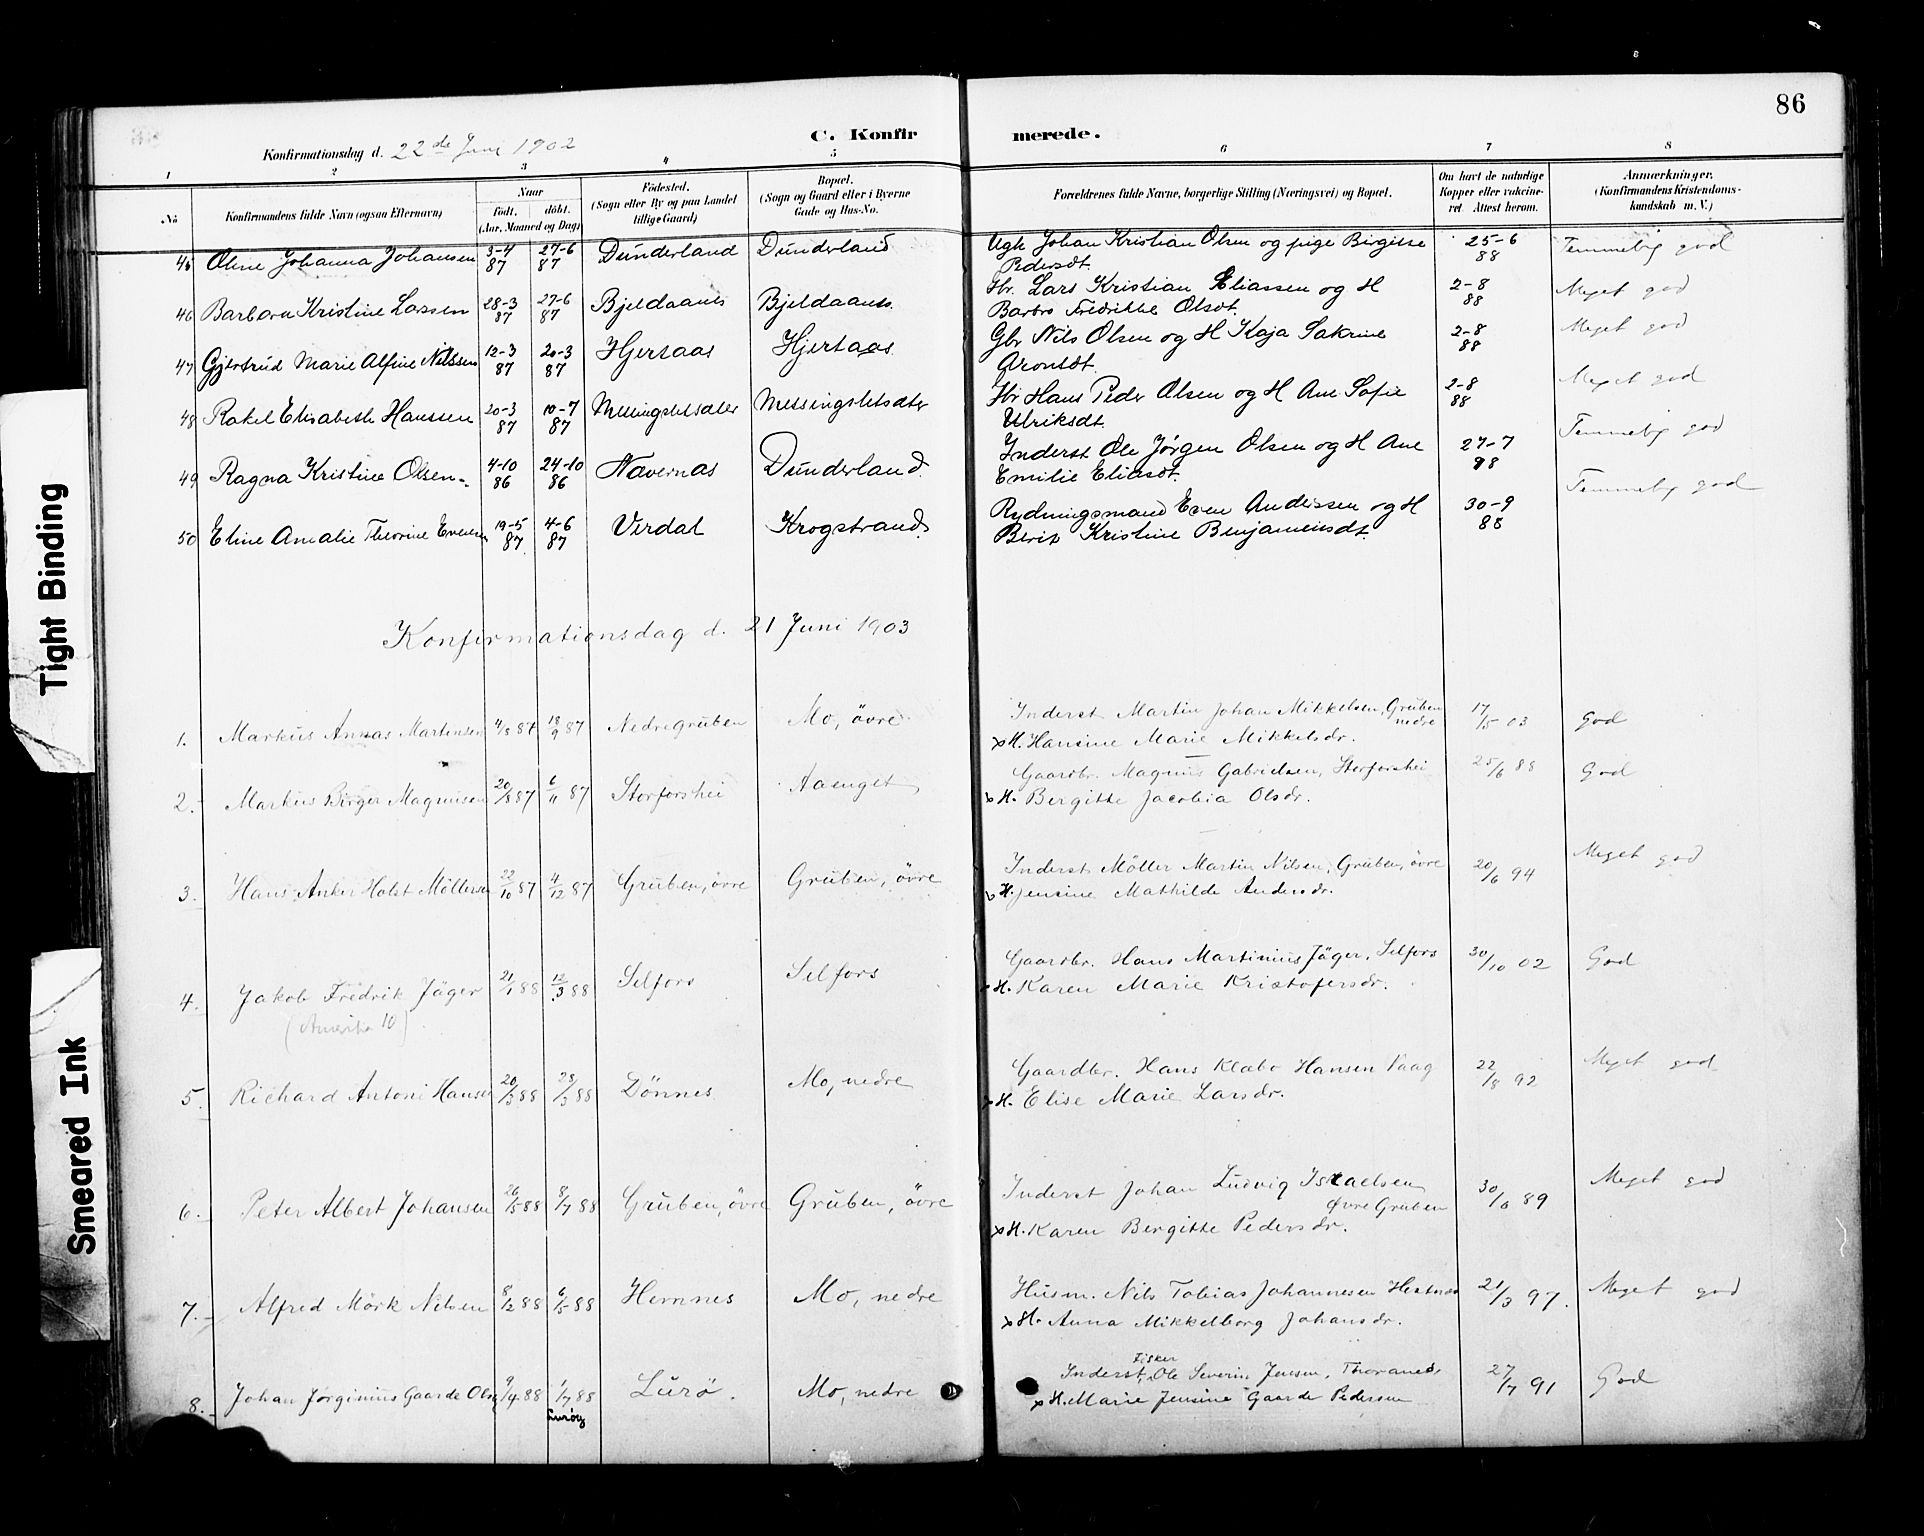 86
C. Konfirmerede.
Konfirmationsdag d. 22de Juni 1902
1 2 3 4 5 6 7 8
No
Konfirmandens fulde Navn (ogsaa Efternavn)
Naar
født. døbt.
(Aar, Maaned og Dag)
Fødested.
(Sogn eller By og paa Landet
tillige Gaard)
Bopæl.
(Sogn og Gaard eller i Byerne
Gade og Hus-No.
Forældrenes fulde Navne, borgerlige Stilling (Næringsvei) og Bopæl.
Om havt de naturlige
Kopper eller vakcine-
ret. Attest herom.
Anmerkninger.
(Konfirmandens Kristendoms-
kundskab m. V.)
45 Oline Johanna Johansen 3-4 87 27-6 87 Dunderland Dunderland Ugk Johan Kristian Olsen og pige Birgitte 25-6 88 Temmelig god
Pedersdt.
46 Barbara Kristine Larssen 28-3 87 27-6 87 Bjeldaanes Bjeldaanes. Hbr. Lars Kristian Eliassen og H 2-8 88 Meget god
Barbro Fredrikke Olsdt.
47 Gjertrud Marie Alfine Nilssen 12-3 87 20-3 87 Hjertaas Hjertaas. Gbr Nils Olsen og H Kaja Sakrine 2-8 88 Meget god
Aronsdt.
48 Rakel Elisabeth Hanssen 20-3 87 10-7 87 Messingsletsæter Messingsletsæter Hbr Hans Peder Olsen og H Ane Sofie 2-8 88 Meget god
Ulriksdt.
49 Ragna Kristine Olsen 4-10 86 24-10 86 Nævernæs Dunderland. Inderst Ole Jørgen Olsen og H Ane 27-7 98 Temmelig god
Emilie Eliasdt.
50 Eline Amalie Theorine Evensen 19-5 87 4-6 87 Virdal Krogstrand. Rydningsmand Even Anderssen og H 30-9 88 Temmelig god
Berit Kristine Benjaminsdt.
Konfirmationsdag d. 21 Juni 1903
1. Markus Annas Martinsen 4/8 87 18/9 87 Nedregruben Mo, øvre Inderst Martin Johan Mikkelsen, Gruben 17/5 03 God
nedre
H. Hansine Marie Mikkelsdr.
2. Markus Birger Magnusen 20/8 87 6/11 87 Storforshei Aaenget Gaardbr. Magnus Gabrielsen, Storforshei 25/6 88 God
H. Bergitte Jacobia Olsdr.
3. Hans Anker Holst Möllersen 22/10 87 4/12 87 Gruben, øvre Gruben, øvre Inderst Möller Martin Nilsen, Gruben, øvre 20/6 94 Meget god
H. Jensine Mathilde Andersdr.
4. Jakob Fredrik Jäger 21/1 88 12/3 88 Selfors Selfors Gaardbr. Hans Martinius Jäger, Selfors 30/10 02 God
(Amerika 10)
H. Karen Marie Kristofersdr.
5. Richard Antoni Hansen 20/3 88 28/3 88 Dönnes Mo, nedre Gaardbr. Hans Klæbo Hansen Vaag 22/8 92 Meget god
H. Elise Marie Larsdr.
6. Peter Albert Johansen 26/5 88 8/7 88 Gruben, øvre Gruben, øvre Inderst Johan Ludvig Israelsen 30/6 89 Meget god
Øvre Gruben
H. Karen Bergitte Pedersdr.
7. Alfred Mörk Nilsen 8/2 88 6/5 88 Hemnes Mo, nedre Husm. Nils Tobias Johannesen Hestnes 21/3 97. Meget god
H. Anna Mikkelborg Johansdr.
8. Johan Jørginius Gaarde Olsen 9/4 88 1/7 88 Lurø. Mo, nedre Inderst, Fisker Ole Severin Jensen, 27/7 91 God
Lurøy
H. Marie Jensine Gaarde Pedersen
Tight Binding
Smeared Ink